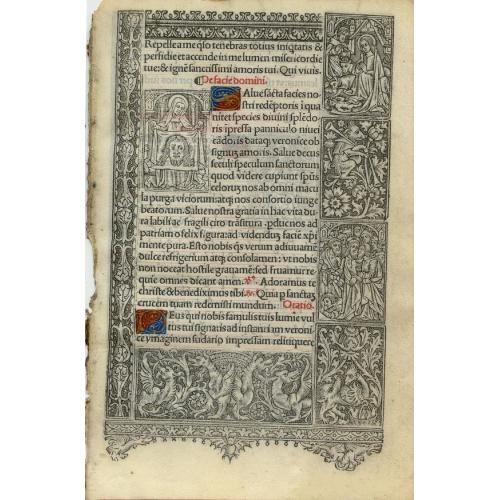 Repelle a me q̃so tenebras totius iniq̃tatis &
perfidie et accende in me lumen misericordie
tue: & ignẽ sanctissimi amoris tui. Qui viuis.
De facie domini.
Alue sãcta facies no
stri redẽptoris i qua
nitet species diuini splẽdo
ris ipressa panniculo niuei
cãdoris dataq; veronice ob
signuz amoris. Salue decus
seculi speculum sanctorum
quod videre cupiunt spũs
celoruz nos ab omni macu
la purga viciorum: atq; nos consortio iunge
beatorum. Salue nostra gratia in hac vita du
ra labili ac fragili cito trãsitura. ꝑduc nos ad
patriam o felix figura: ad videnduz faciẽ xp̃i
mente pura. Esto nobis q̃s verum adiuuamẽ
dulce refrigerium atq; consolamen: vt nobis
non noceat hostile grauamẽ: sed fruamur re
quie omnes dicant amen. ℣. Adoramus te
christe & benediximus tibi. ℟. Quia p sanctaz
crucem tuam redemisti mundum. Oratio.
Eus qui nobis famulis tuis lumie vul
tus tui signatis ad instantiam veroni
ce ymaginem sudario impressam relinquere